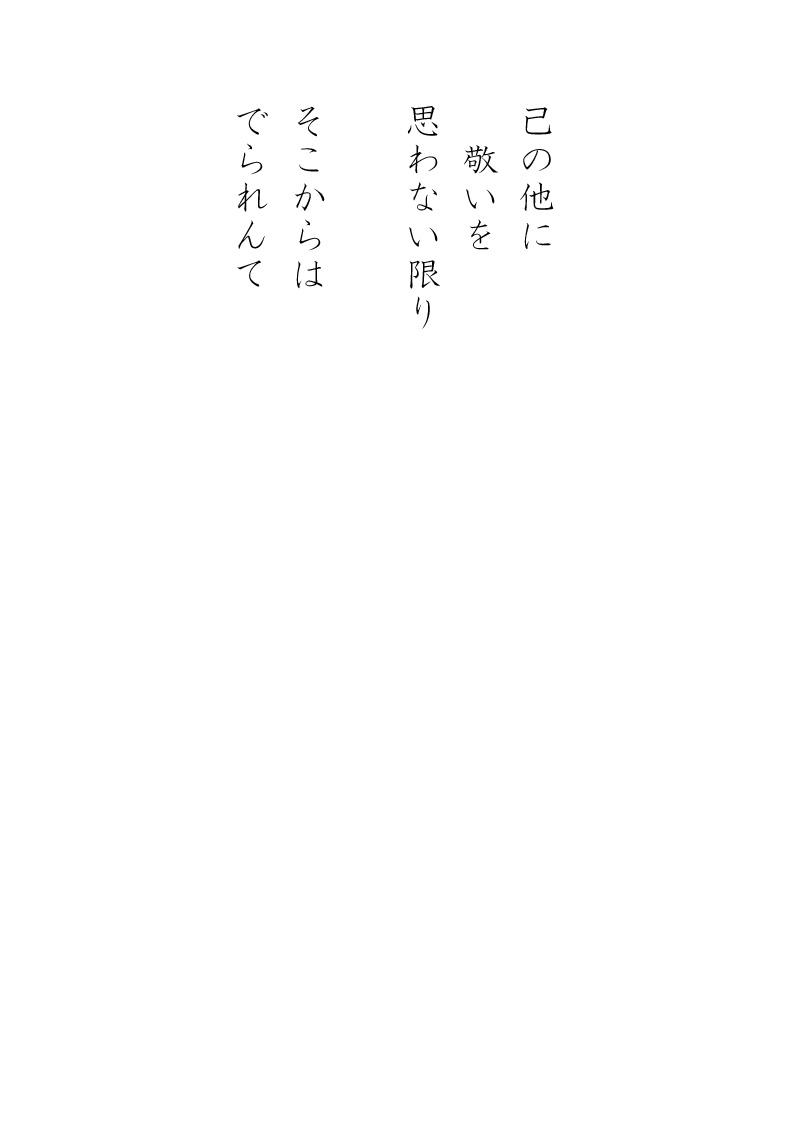 己の他に
敬いを
思わない限り
そこからは
でられんて